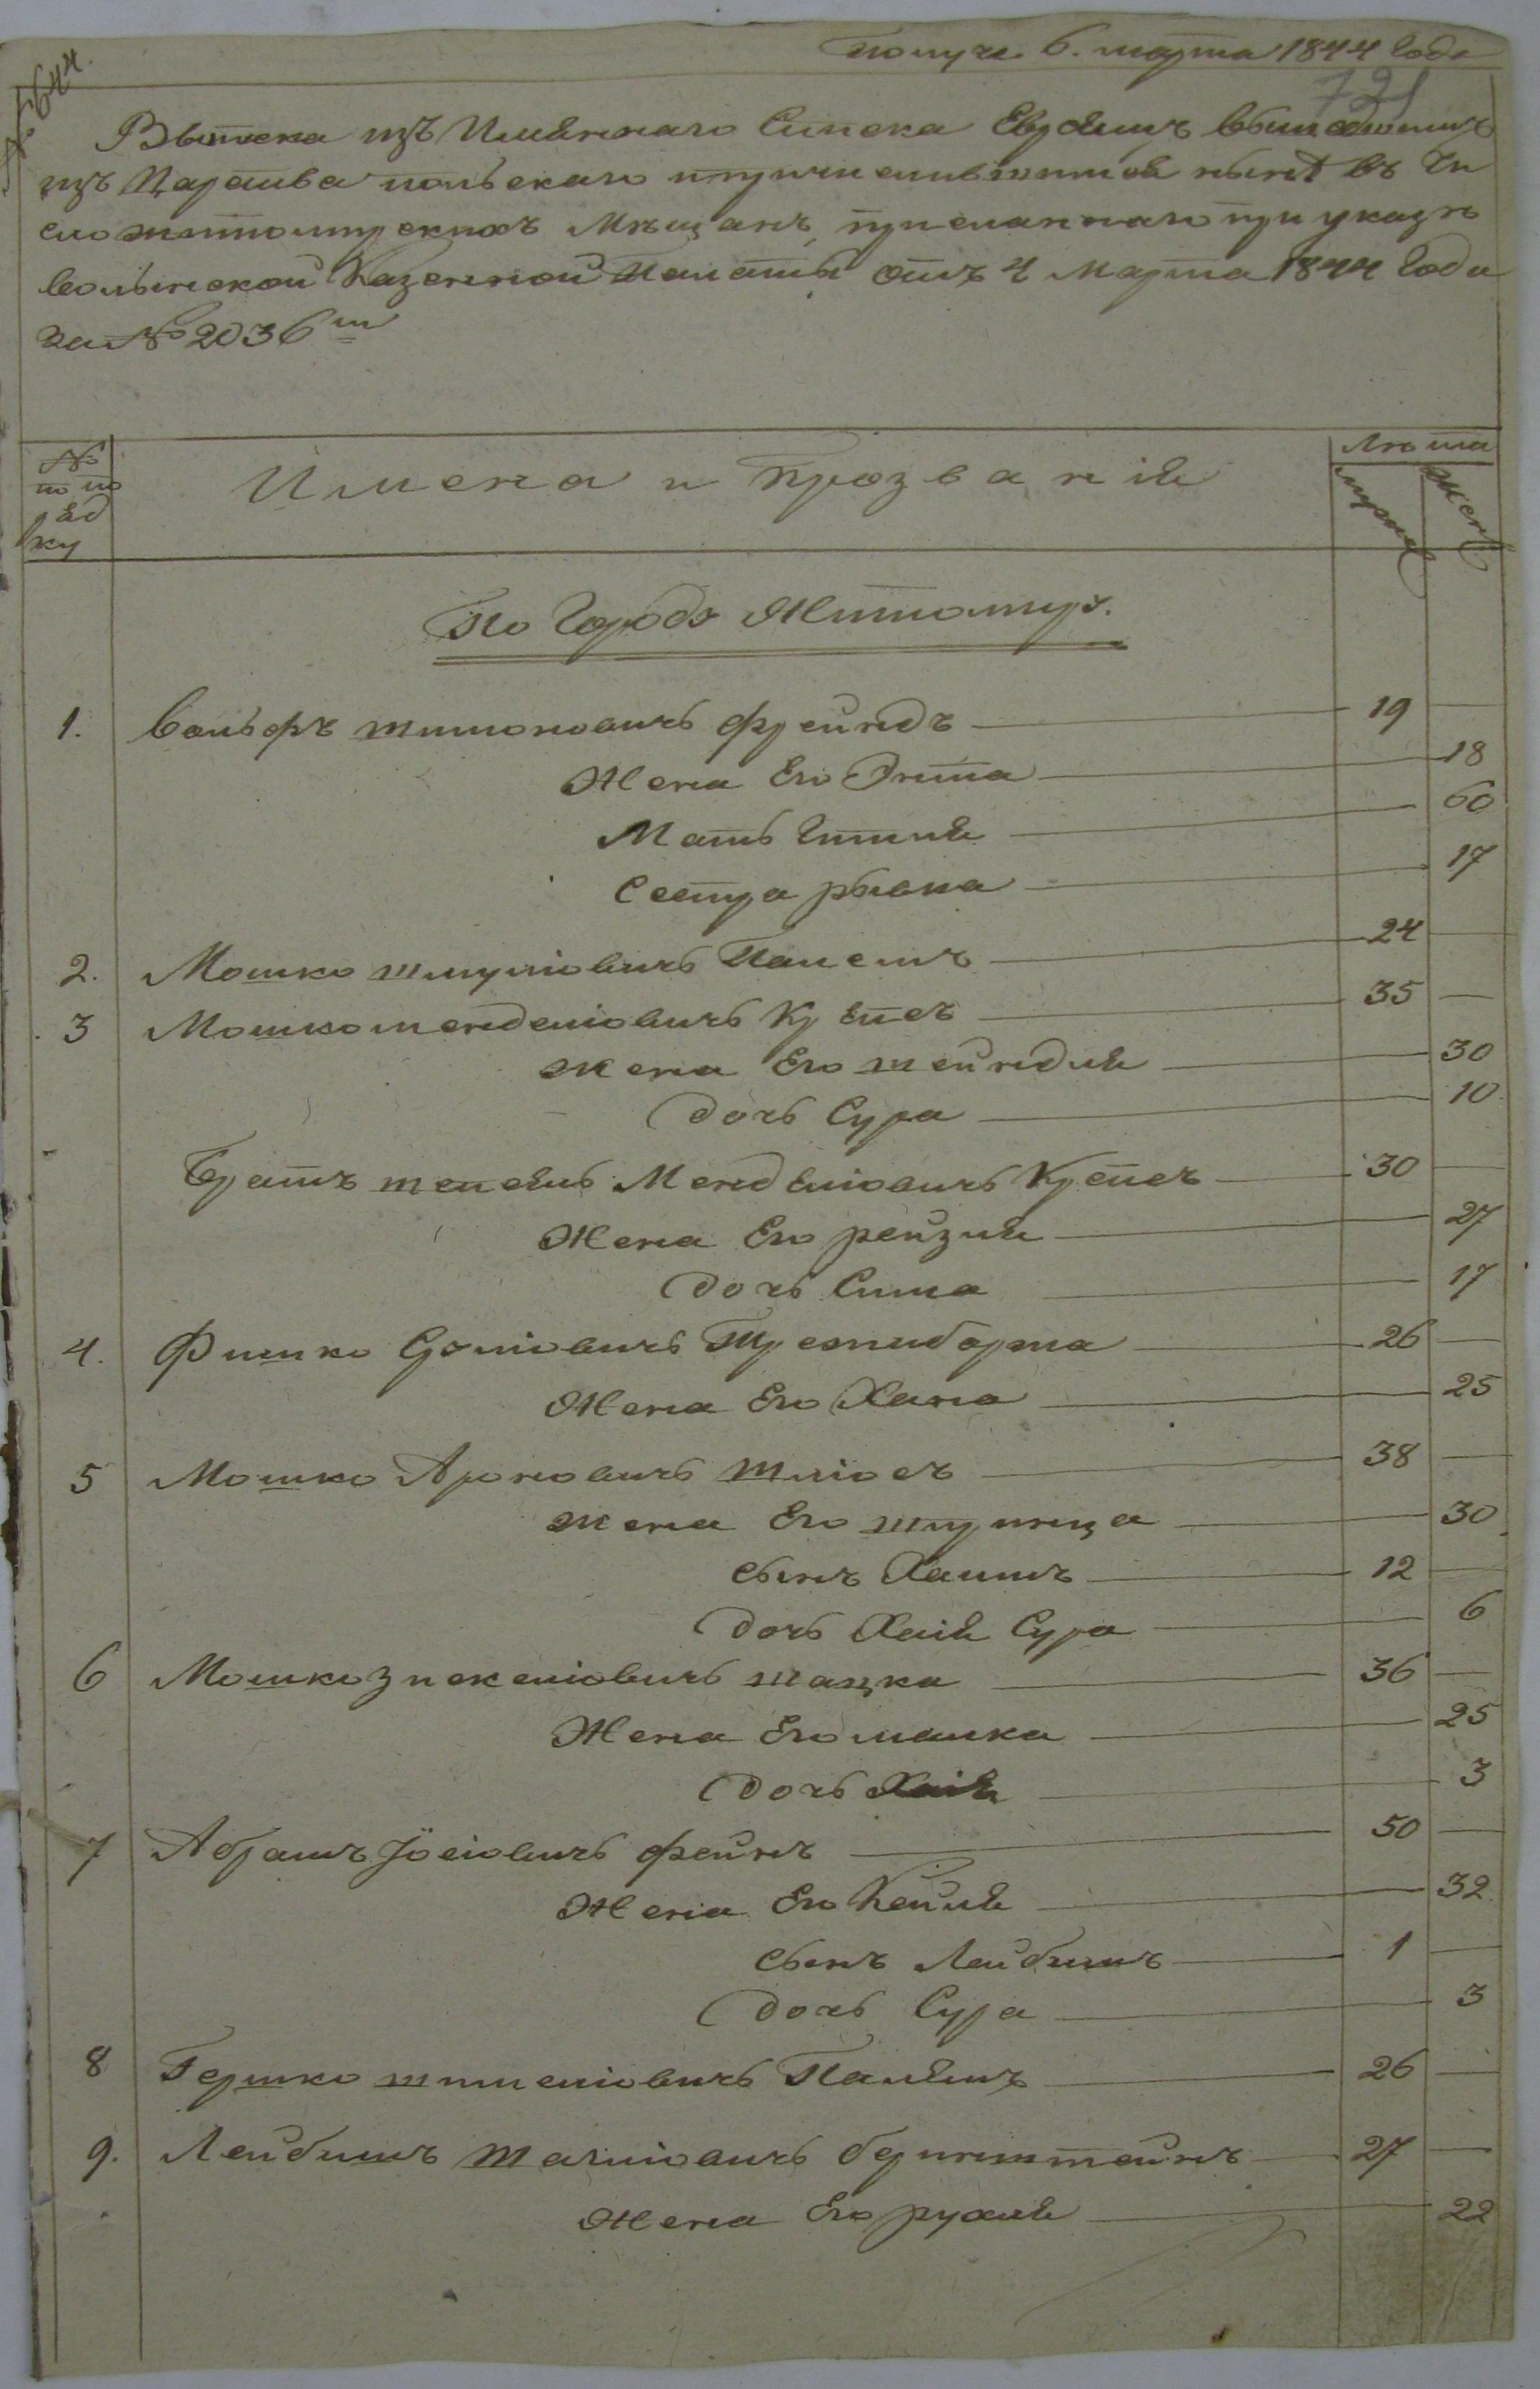 получе 6. марта 1844 Года
№ 644.
721
Выписка изъ Имяннаго Списка Евреямъ вышедшимъ
изъ Царства польскаго и причислившимся ныне въ Чи
сло житомирскихъ Мещанъ, присланнаго при указѣ
Волынской Казенной Палаты отъ 4 Марта 1844 Года
за № 2036 м
№ по по ряд ку
Имена и Прозванія
Лѣта
мужс
женс
По Городу Житомиру.
1. Вольфъ Шимоновичъ Фрейндъ 19
Жена Его Энта 18
Мать Гитля 60
Сестра рывка 17
2. Мошко Шмуліовичъ Палемъ 24
3 Мошко менделіовичъ Крепсъ 35
жена Его шейндля 30
дочь Сура 10
Братъ шепсель Менделіовичъ Крепсъ 30
Жена Его рейзля 27
дочь Сима 17
4. Фишко Сроліовичъ Трескиборта 26
Жена Его Хана 25
5 Мошко Ароновичъ Шліосъ 38
жена Его шпринца 30
сынъ Хаимъ 12
дочь Хаія Сура 6
6 Мошко Зискеліовичъ шацка 36
Жена Его малка 25
дочь Хаія 3
7 Абрамъ Іосіовичъ Фейнъ 50
Жена Его Кейля 32
сынъ Лейбишъ 1
дочь Сура 3
8 Гершко шмиеліовичъ Палемъ 26
9. Лейбишъ Шаліовичъ беринштейнъ 27
Жена Его рухля 22